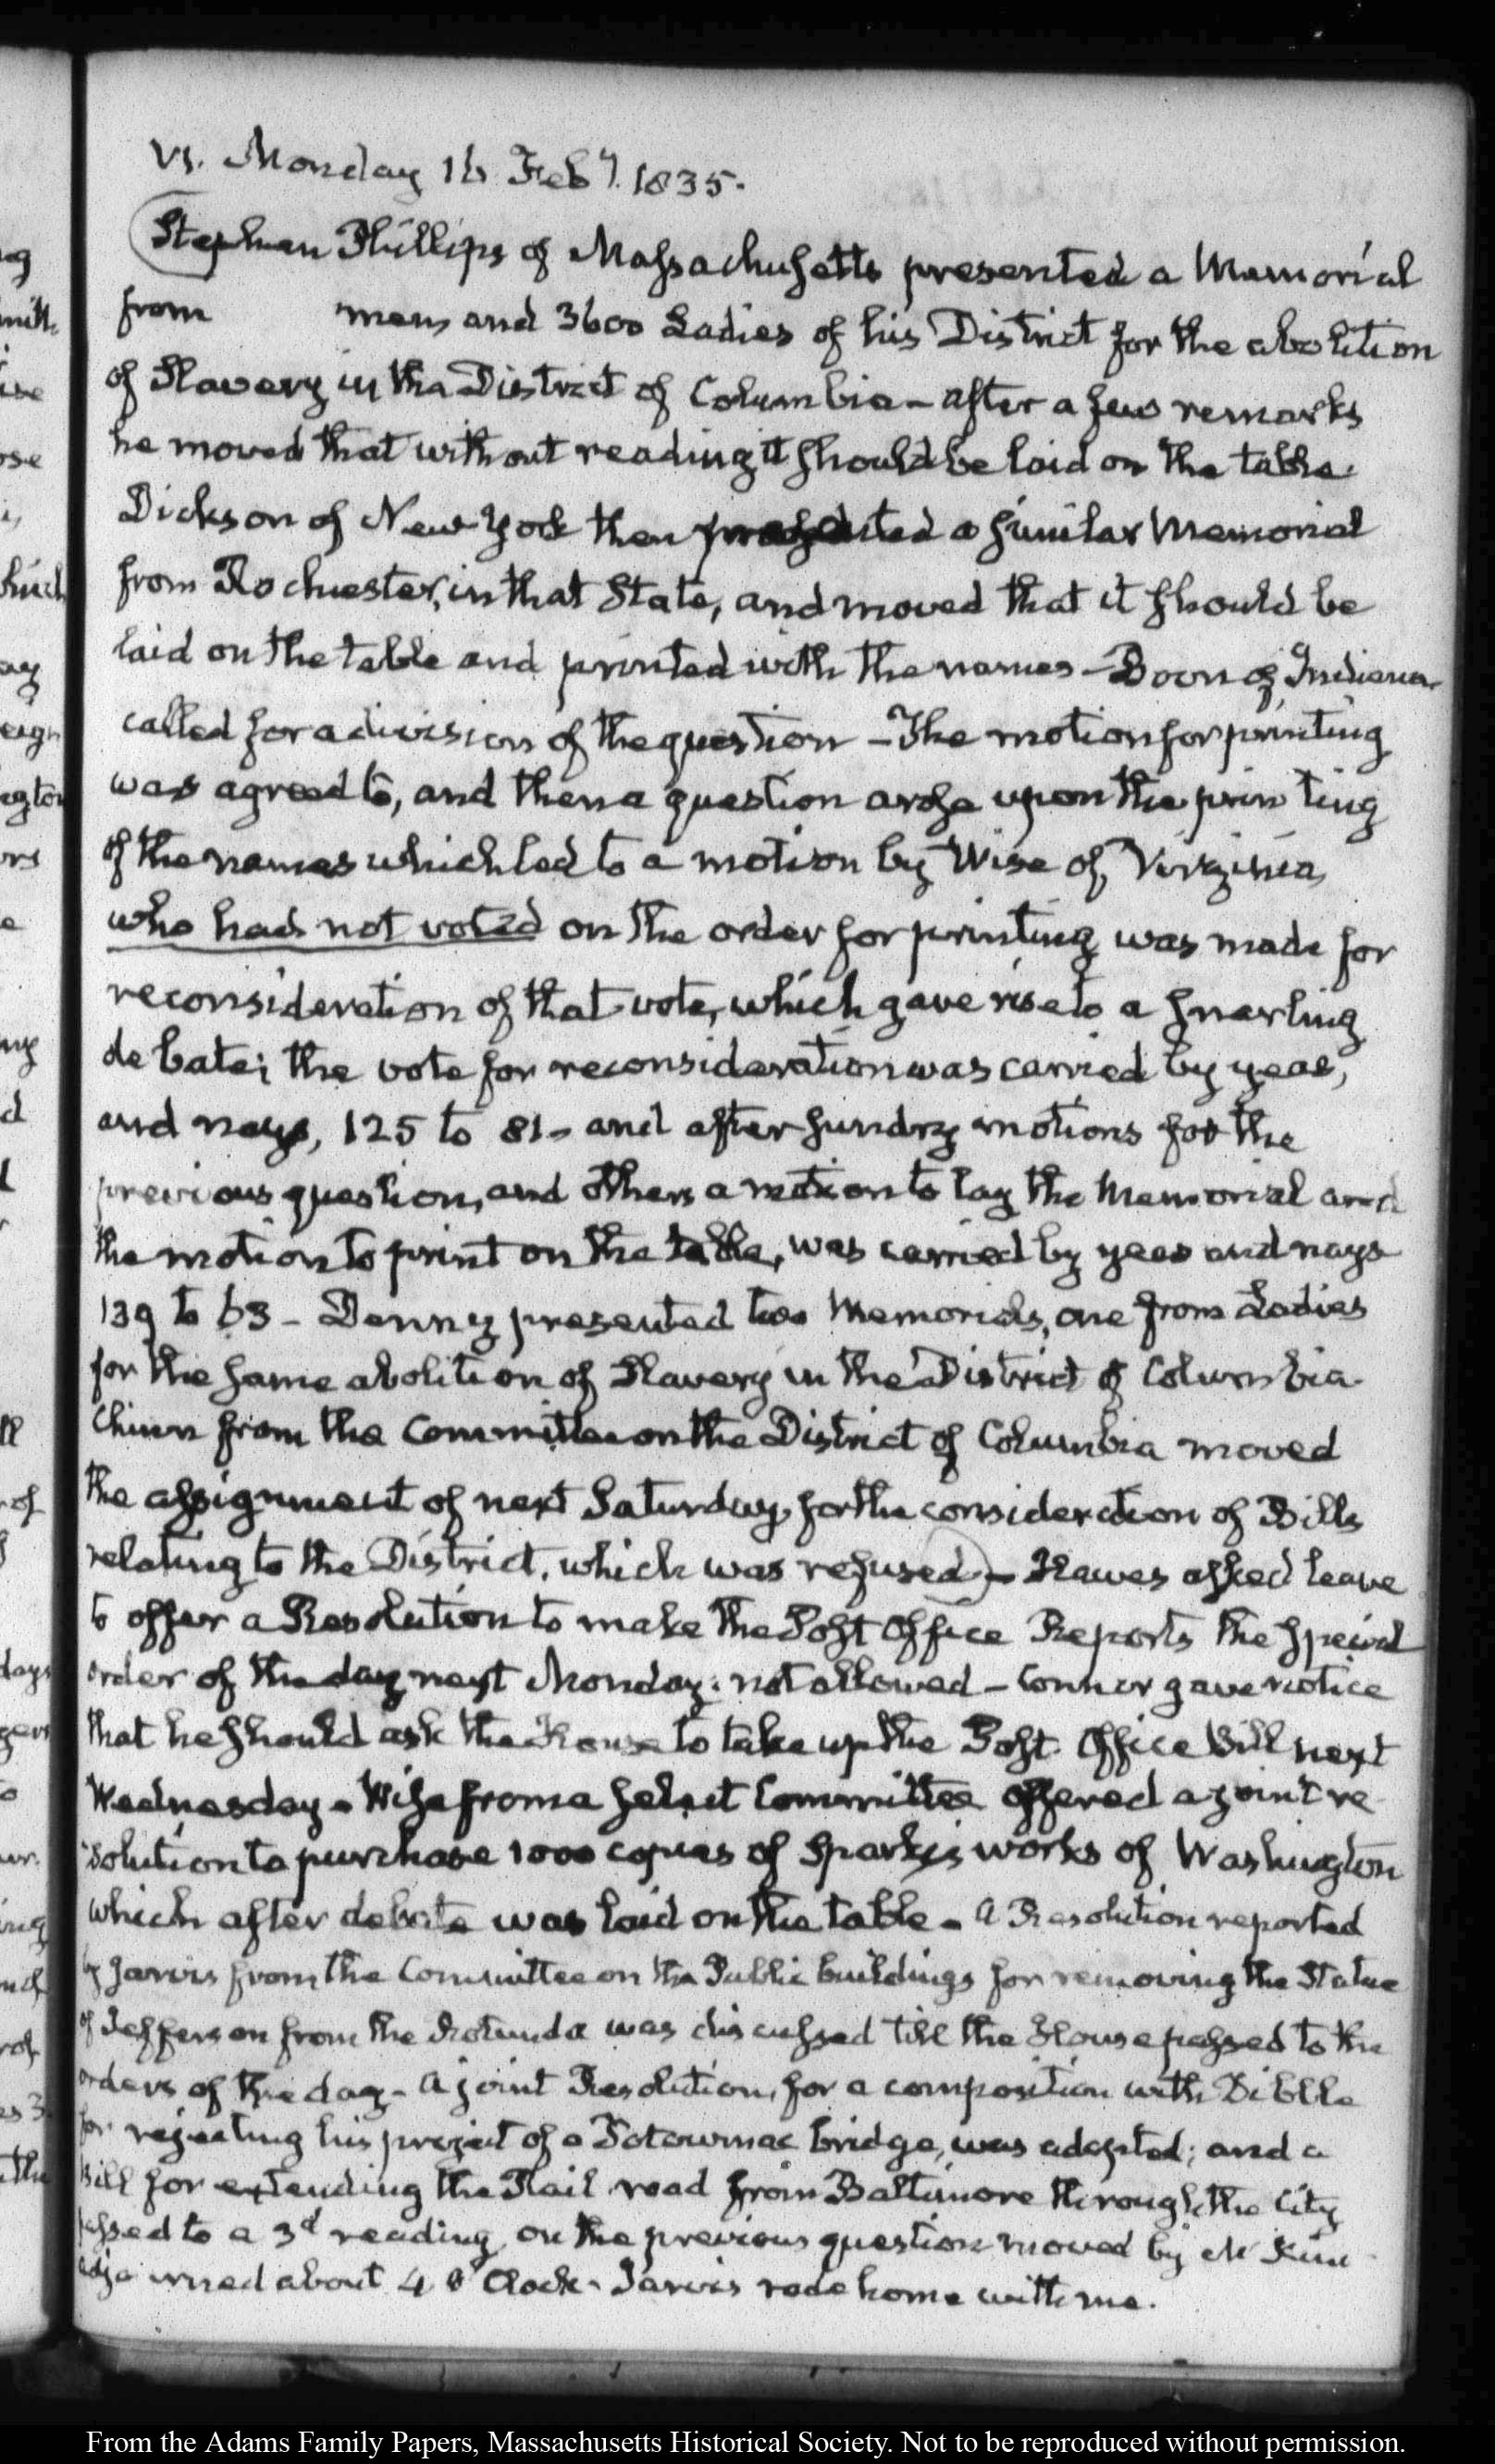 VI. Monday 16 Feby. 1835.
Stephen Phillips of Massachusetts presented a Memorial
from men and 3600 Ladies of his District for the abolition
of Slavery in the District of Columbia – after a few remarks
he moved that without reading it should be laid on the table.
Dickson of New York then presented a similar Memorial
from Rochester, in that State, and moved that it should be
laid on the table and printed with the names – Boon of Indiana
called for a division of the question – The motion for printing
was agreed to, and then a question arose upon the printing
of the names which led to a motion by Wise of Virginia,
who had not voted on the order for printing was made for
reconsideration of that vote, which gave rise to a snarling
debate; the vote for reconsideration was carried by yeas,
and nays, 125 to 81 – and after sundry motions for the
previous question, and others a motion to lay the Memorial and
the motion to print on the table, was carried by yeas and nays
139 to 63 – Denny presented two Memorials, one from Ladies
for the same abolition of Slavery in the District of Columbia.
Chinn from the Committee on the District of Columbia moved
the assignment of next Saturday, for the consideration of Bills
relating to the District, which was refused – Hawes asked leave
to offer a Resolution to make the Post Office Reports the special
order of the day next Monday: not allowed – Connor gave notice
that he should ask the House to take up the Post Office Bill next
Wednesday – Wise from a select Committee offered a joint re
solution to purchase 1000 copies of Sparks's works of Washington
which after debate was laid on the table – A Resolution reported
by Jarvis from the Committee on the Public buildings for removing the Statue
of Jefferson from the Rotunda was discussed till the House passed to the
orders of the day – A joint Resolution, for a composition with Dibble
for rejecting his project of a Potowmac bridge, was adopted; and a
Bill for extending the Rail road from Baltimore through the City
passed to a 3d reading, on the previous question moved by McKim
adjourned about 4 O'Clock. Jarvis rode home with me.
From the Adams Family Papers, Massachusetts Historical Society. Not to be reproduced without permission.